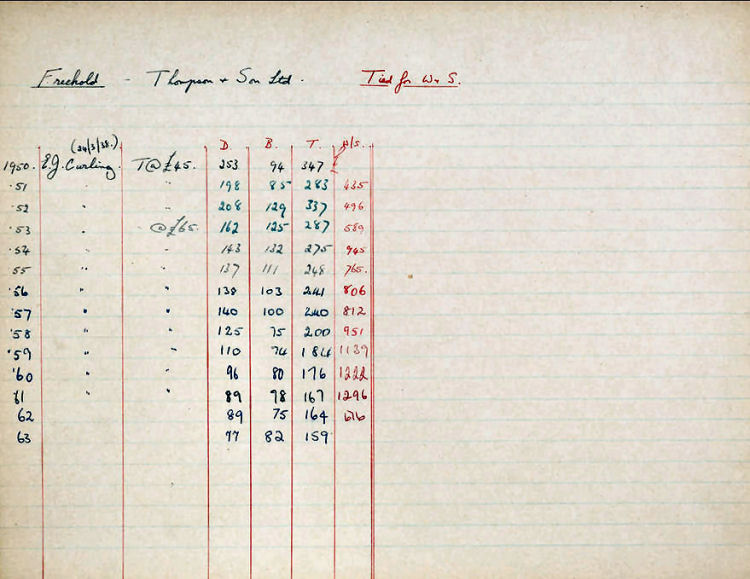 Freehold - Thompson & Son Ltd. Tied for W & S.
(24/3/38.) D. B. T.
1950. E.J. Curling. T@ £45. 253 94 347
'51 " " 198 85 283 435
'52 " " 208 129 337 496
'53 " @£65. 162 125 287 589
'54 " " 143 132 275 945
55 " " 137 111 248 765.
'56 " " 138 103 241 806
'57 " " 140 100 240 812
'58 " " 125 75 200 951
'59 " " 110 74 184 1139
'60 " " 96 80 176 1222
61 " " 89 78 167 1296
62 89 75 164 676
63 77 82 159